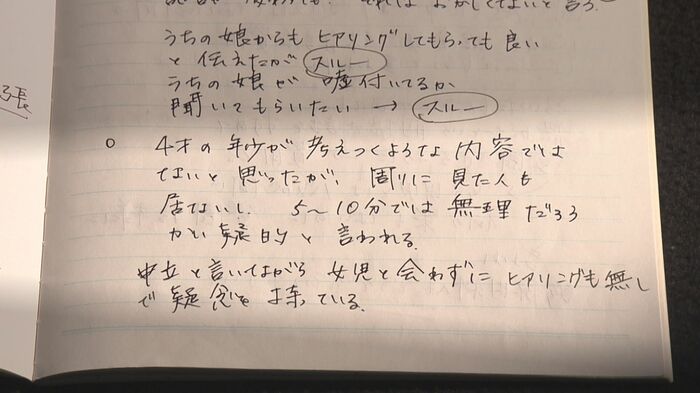 それは おかしくてないと言う
うちの娘からも ヒアリングしてもらっても良い
と 伝えたが スルー
うちの娘が 嘘付いてるか
聞いてもらいたい → スルー
○ 4才の年少が 考えつくような 内容では
ないと 思ったが、周りに 見た人も
居ないし 5〜10分では 無理 だろう
か 疑的 と 言われる.
中立と言いながら 女児と会わずに ヒアリングも無し
で 疑念を 持っている.